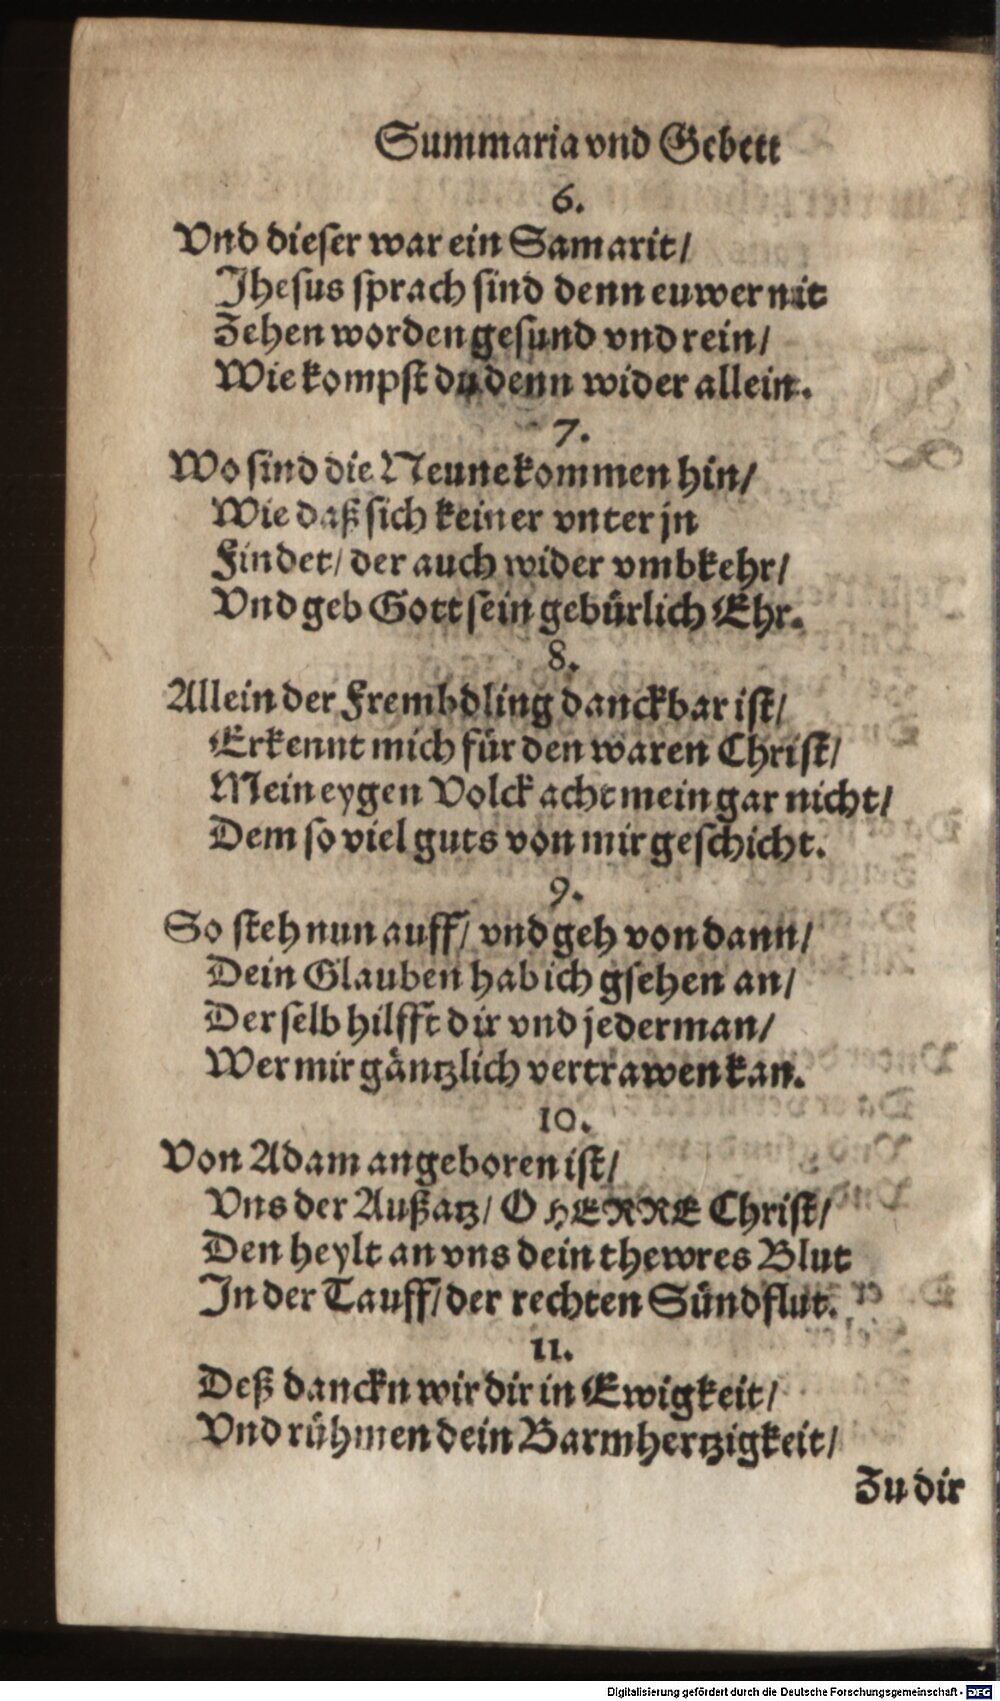 Summaria vnd Gebett
6.
Vnd dieser war ein Samarit/
Jhesus sprach sind denn euwer nit
Zehen worden gesund vnd rein/
Wie kompst du denn wider allein.
7.
Wo sind die Neune kommen hin/
Wie daß sich keiner vnter jn
Findet/ der auch wider vmbkehr/
Vnd geb Gott sein gebürlich Ehr.
8.
Allein der Frembdling danckbar ist/
Erkennt mich für den waren Christ/
Mein eygen Volck acht mein gar nicht/
Dem so viel guts von mir geschicht.
9.
So steh nun auff/ vnd geh von dann/
Dein Glauben hab ich gsehen an/
Derselb hilfft dir vnd jederman/
Wer mir gäntzlich vertrawen kan.
10.
Von Adam angeboren ist/
Vns der Außatz/ O HERRE Christ/
Den heylt an vns dein thewres Blut
In der Tauff/ der rechten Sündflut.
11.
Deß danckn wir dir in Ewigkeit/
Vnd rühmen dein Barmhertzigkeit/
Zu dir
Digitalisierung gefördert durch die Deutsche Forschungsgemeinschaft - DFG